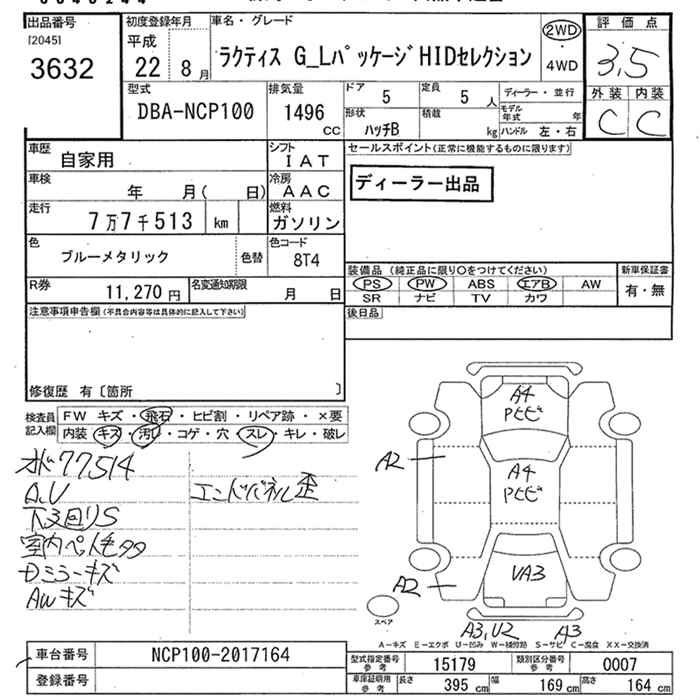 出品番号
[2045]
3632
初度登録年月
平成
22 8月
車名・グレード
ラクティス G_LパッケージHIDセレクション
2WD
・
4WD
評価点
3.5
外装 内装
C C
型式
DBA-NCP100
排気量
1496
CC
ドア
5
定員
5 人
形状
ハッチB
積載
kg
ディーラー・並行
モデル年式 年
ハンドル 左・右
車歴
自家用
シフト
IAT
車検
年 月( 日)
冷房
AAC
走行
7万7千513 km
燃料
ガソリン
色
ブルーメタリック
色替
色コード
8T4
R券
11,270 円
名変通知期限
月 日
セールスポイント(正常に機能するものに限ります)
ディーラー出品
装備品 (純正品に限り○をつけてください)
PS PW ABS エアB AW
SR ナビ TV カワ
新車保証書
有・無
後日品
注意事項申告欄(不具合内容等は具体的に記入して下さい)
修復歴 有〔箇所 〕
検査員
記入欄
FW キズ・飛石・ヒビ割・リペア跡・×要
内装 キズ・汚れ・コゲ・穴・スレ・キレ・破レ
77514
A,U
下廻りS
Dミラーキズ
AWキズ
エンドパネル歪
A4
Pヒビ
A2
A4
Pヒビ
UA3
A2
A3,U2
A3
スペア
A−キズ E−エクボ U−凹み W−補修跡 S−サビ C−腐食 XX−交換済
車台番号
NCP100-2017164
登録番号
型式指定番号
参考
15179
類別区分番号
参考
0007
車庫証明用
参考
長さ 395 cm
幅 169 cm
高さ 164 cm